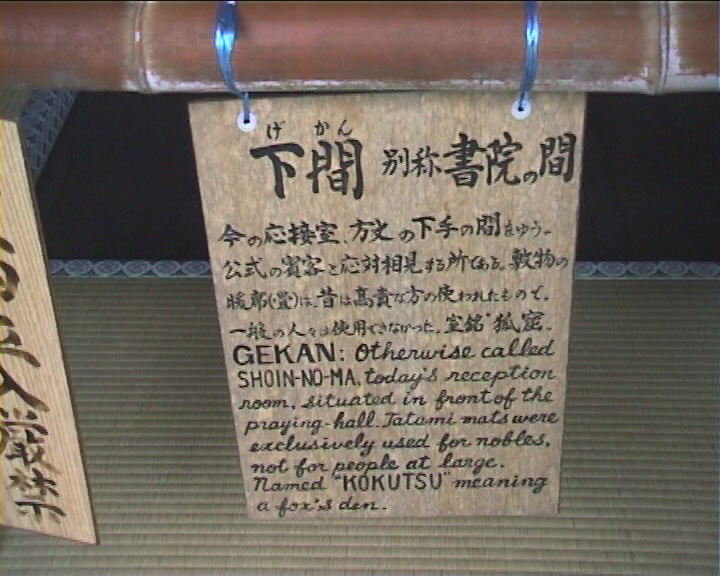 げかん
下間 別称 書院の間
今の応接室、方丈の下手の間をゆう。
公式の賓客と応対相見する所である。敷物の
暖席(畳)は、昔は高貴な方の使われたもので、
一般の人々は使用できなかった。室銘"狐窟。
GEKAN: Otherwise called
SHOIN-NO-MA, today's reception
room, situated in front of the
praying-hall. Tatami mats were
exclusively used for nobles,
not for people at large.
Named "KOKUTSU" meaning
a fox's den.
立入厳禁